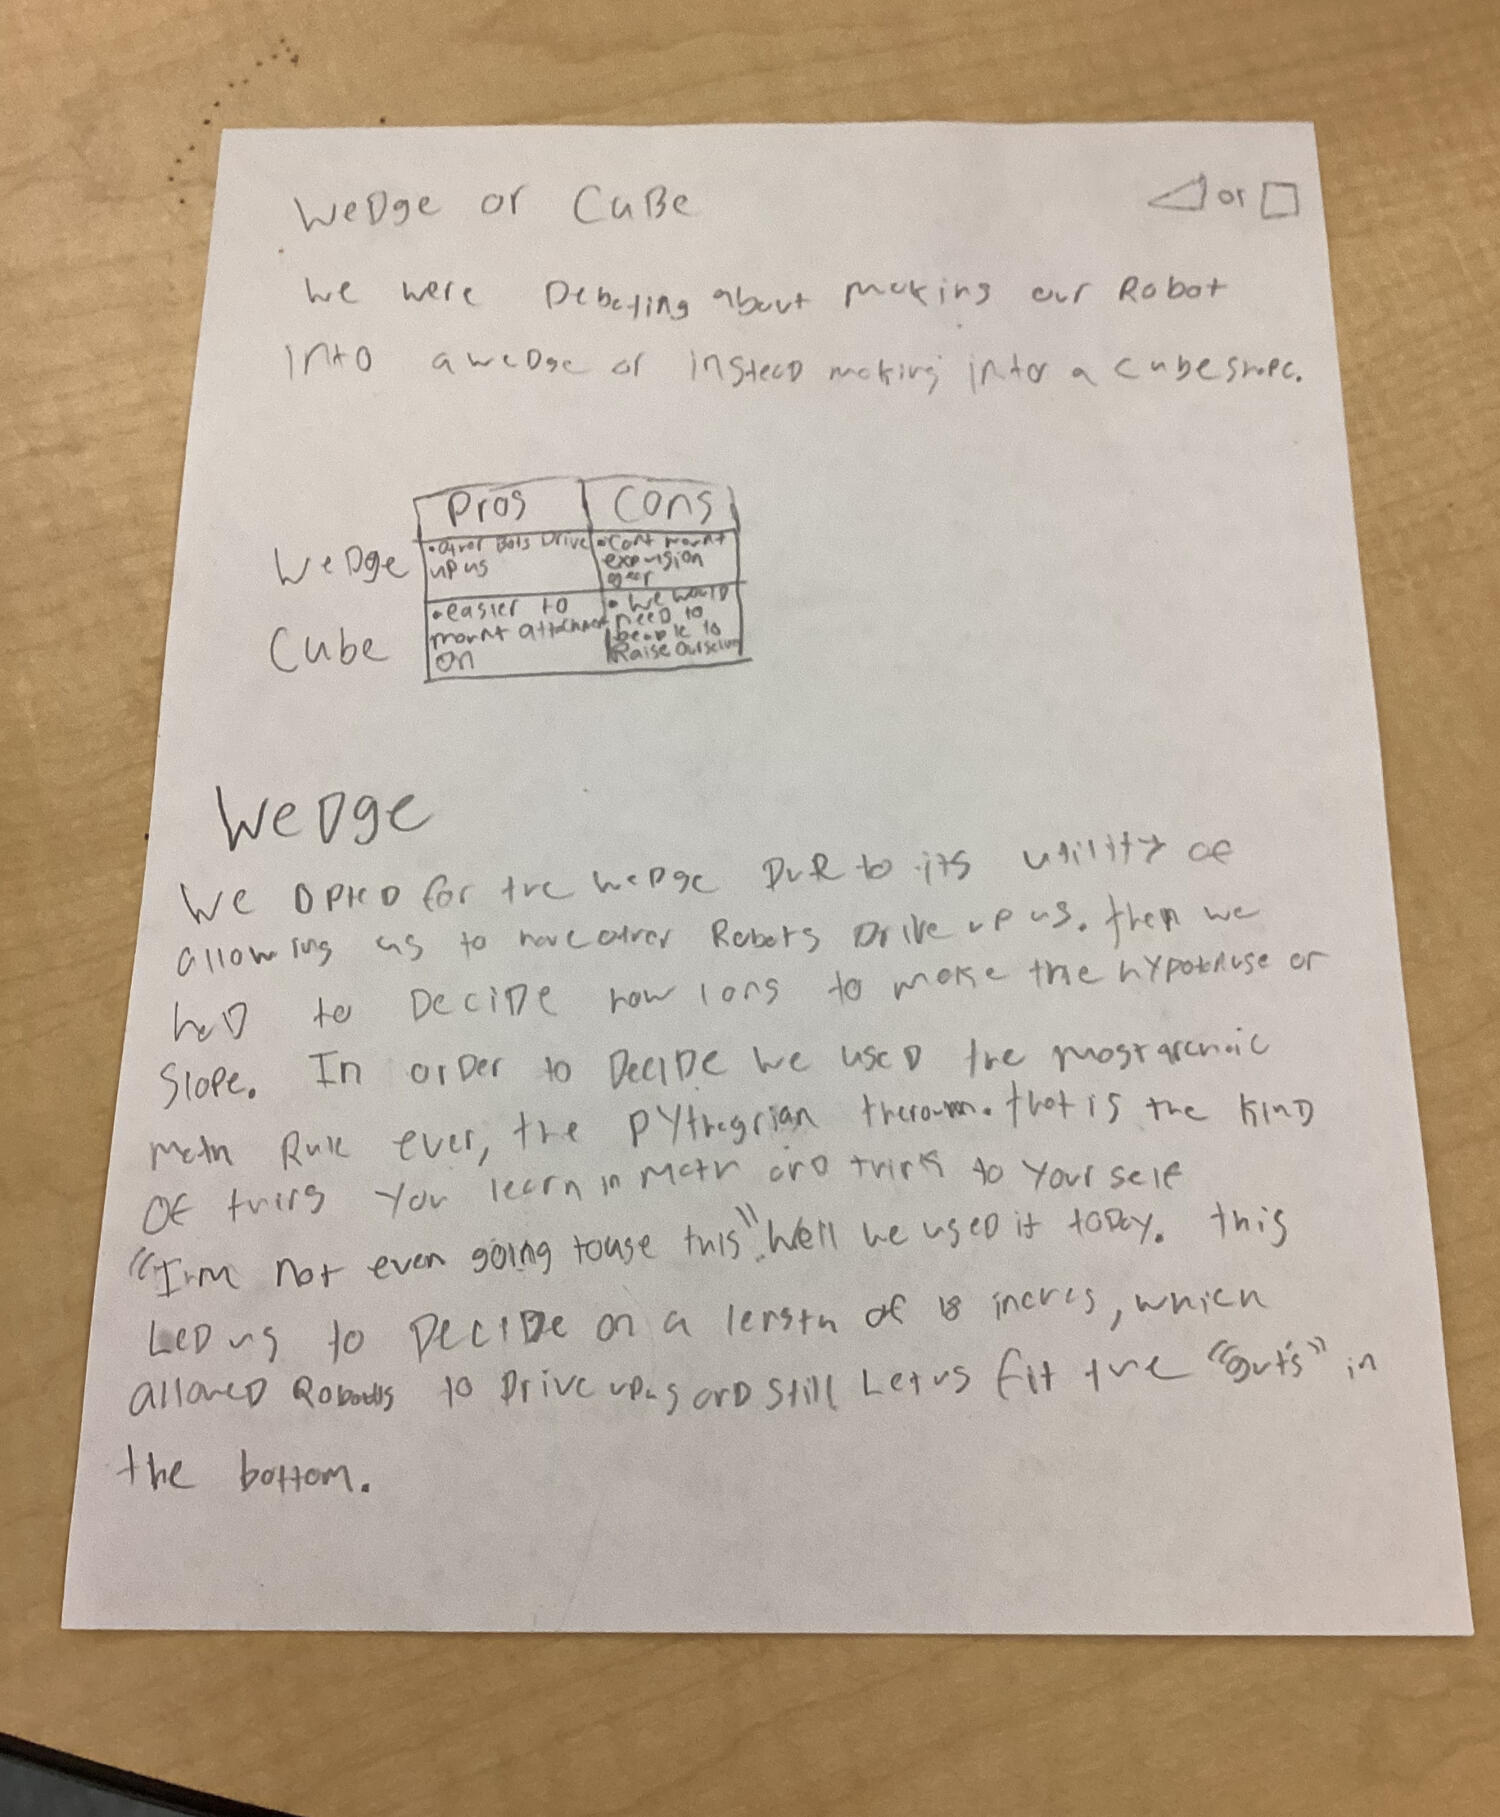 Wedge or Cube
or
We were Debating about making our Robot
into a wedge or instead making into a cube shape.
Pros Cons
Wedge •other Bots Drive up us •Cant mount expansion gear
Cube •easier to mount attachment on •We would need to be able to Raise ourselves
Wedge
We opted for the wedge Due to its utility of
allowing us to have other Robots Drive up us. then we
had to Decide how long to make the hypotnuse or
Slope. In order to Decide we used the most archaic
math Rule ever, the pythagrian theroum. that is the kind
of thing you learn in math and think to your self
"I'm not even going to use this". Well we used it today. this
Led us to Decide on a length of 18 inches, which
allowed Robots to Drive up us and still Let us fit the "guts" in
the bottom.